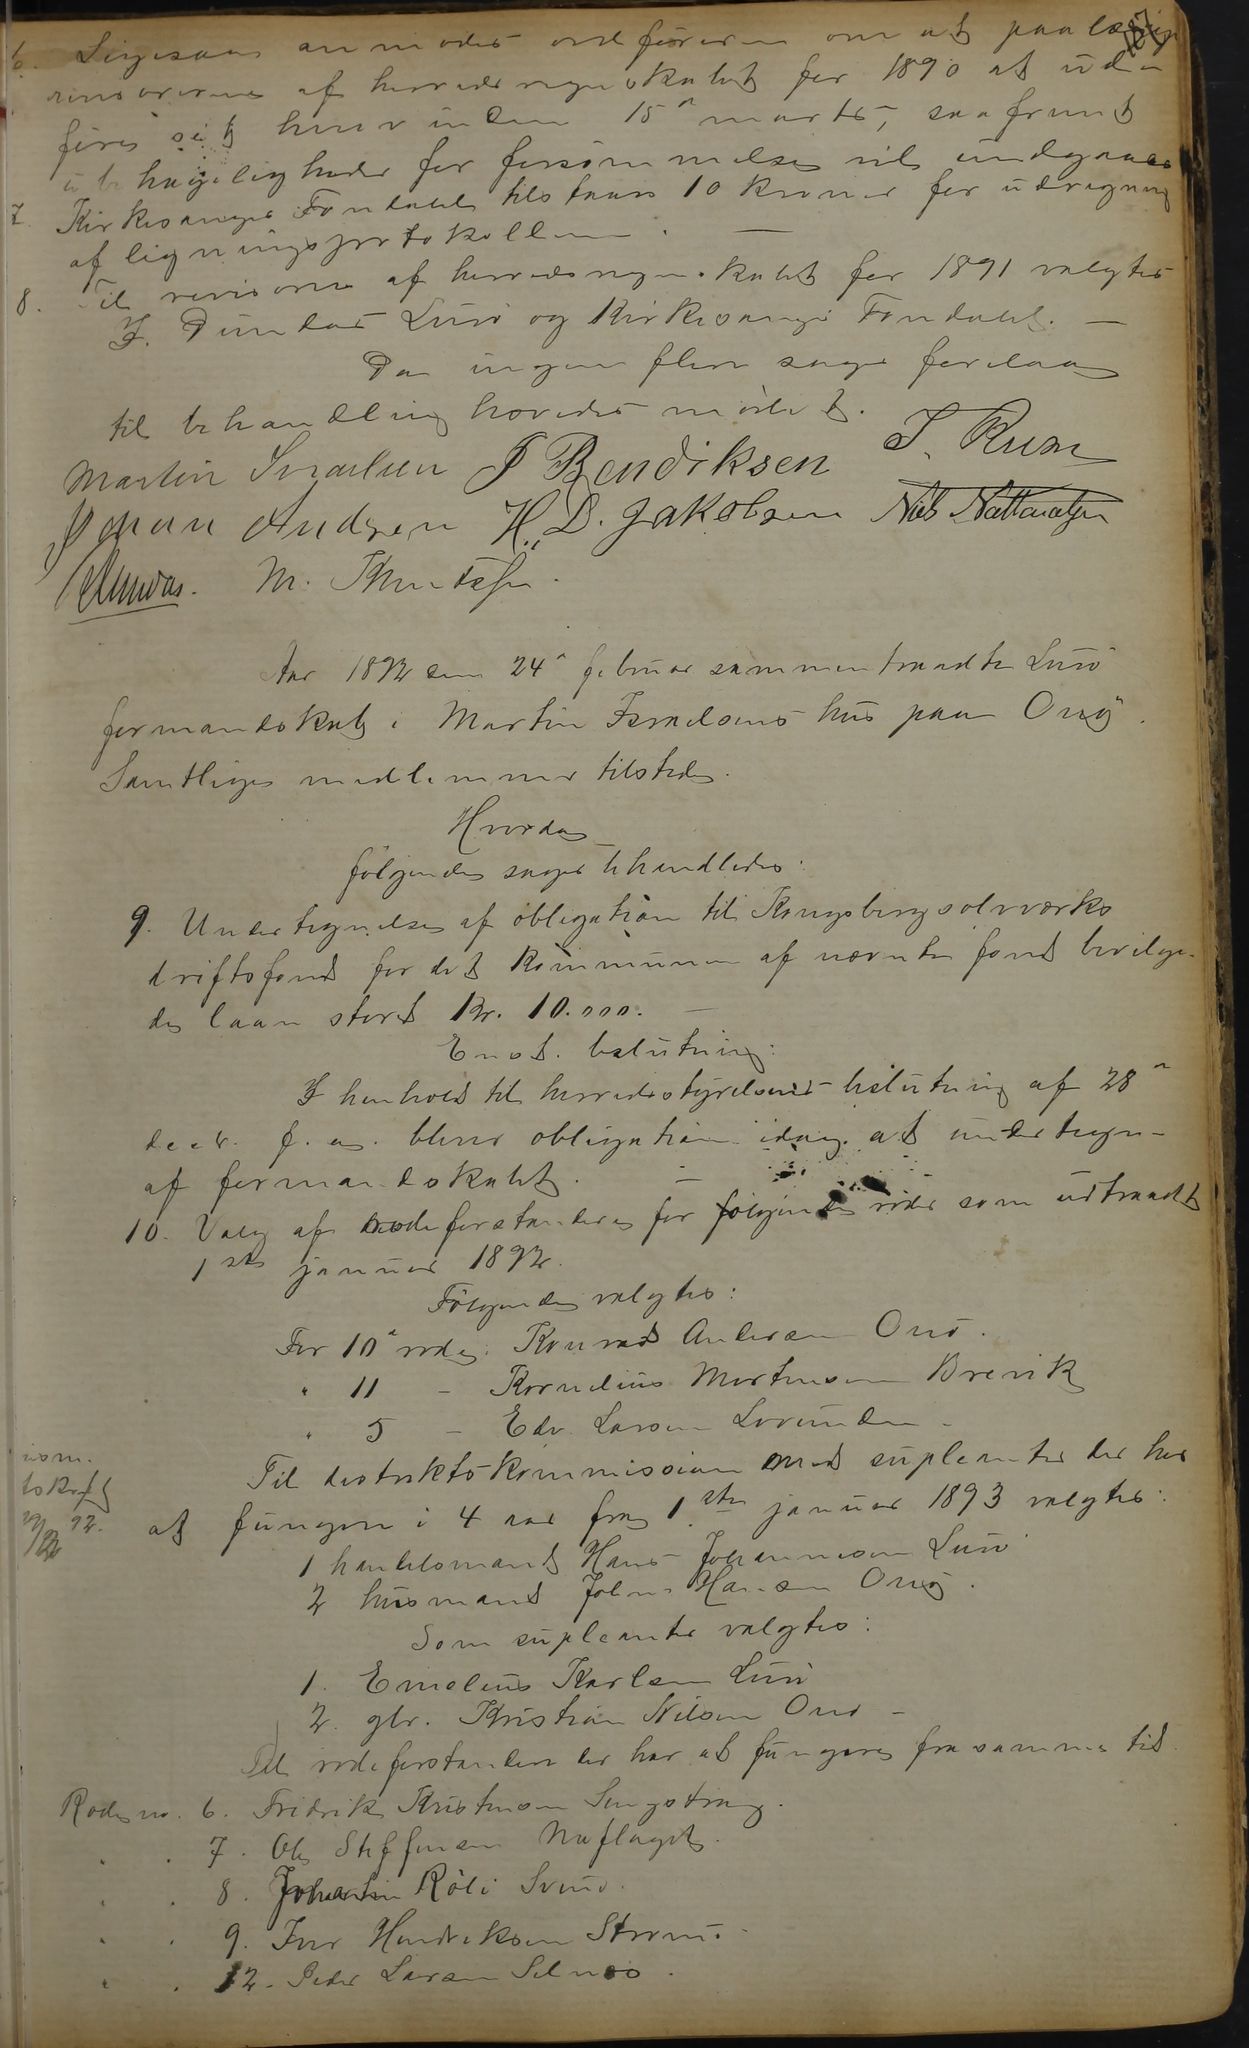 6. Ligesaa anmodes ordføreren om at paalægge
revisorerne af herredsregnskabet for 1890 at ud-
føre sit hverv inden 15de marts, saafremt
ubehageligheder for forsømmelse vil undgaaes
7. Kirkesanger Fondahl tilstaaes 10 kroner for udregning
af ligningsprotokollen. —
8. Til revisorer af herredsregnskabet for 1891 valgtes
I. Dundas Lurø og Kirkesanger Fondahl. —
Da ingen flere sager forelaa
til behandling hævedes mødet.
Martin Israelsen J Bendiksen
Johan Andsen H. D. Jakobsen Nils Nathanalsen
Dundas. M.
Aar 1892 den 24de februar sammentraadte Lurø
formandskab i Martin Israelsens hus paa Onø.
Samtlige medlemmer tilstede.
Hvorda
følgende sager behandledes:
9. Undertegnelse af obligation til Kongsberg sølvværks
driftsfond for det kommunen af nævnte fond bevilge-
de laan stort Kr. 10.000. —
Enst. beslutning:
I henhold til herredsstyrelsens beslutning af 28de
decbr. f. a. bliver obligationen idag at undertegne
af formandskabet. —
10. Valg af rodeforstandere for følgende roder som udtraadt
1ste januar 1892.
Følgende valgtes:
For 10de rode: Konrad Andersen Onø.
" 11 - Kornelius Mortensen Brevik
" 5 - Edv. Larsen Lovunden -
Til distriktskommission med supleanter der har
at fungere i 4 aar fra 1ste januar 1893 valgtes:
1 handelsmand Hans Johannesen Lurø
2 husmand Johan Hansen Onø.
Som supleanter valgtes:
1. Emelius Karlsen Lurø
2. gbr. Kristian Nilsen Onø -
Til rodeforstandere der har at fungere fra samme tid.
Rode no. 6. Fridrik Kristensen
" . 7. Ole Steffensen
" . 8. Johan Røli
" . 9. Hendriksen
" . 12. Peder Larsen Selnes.